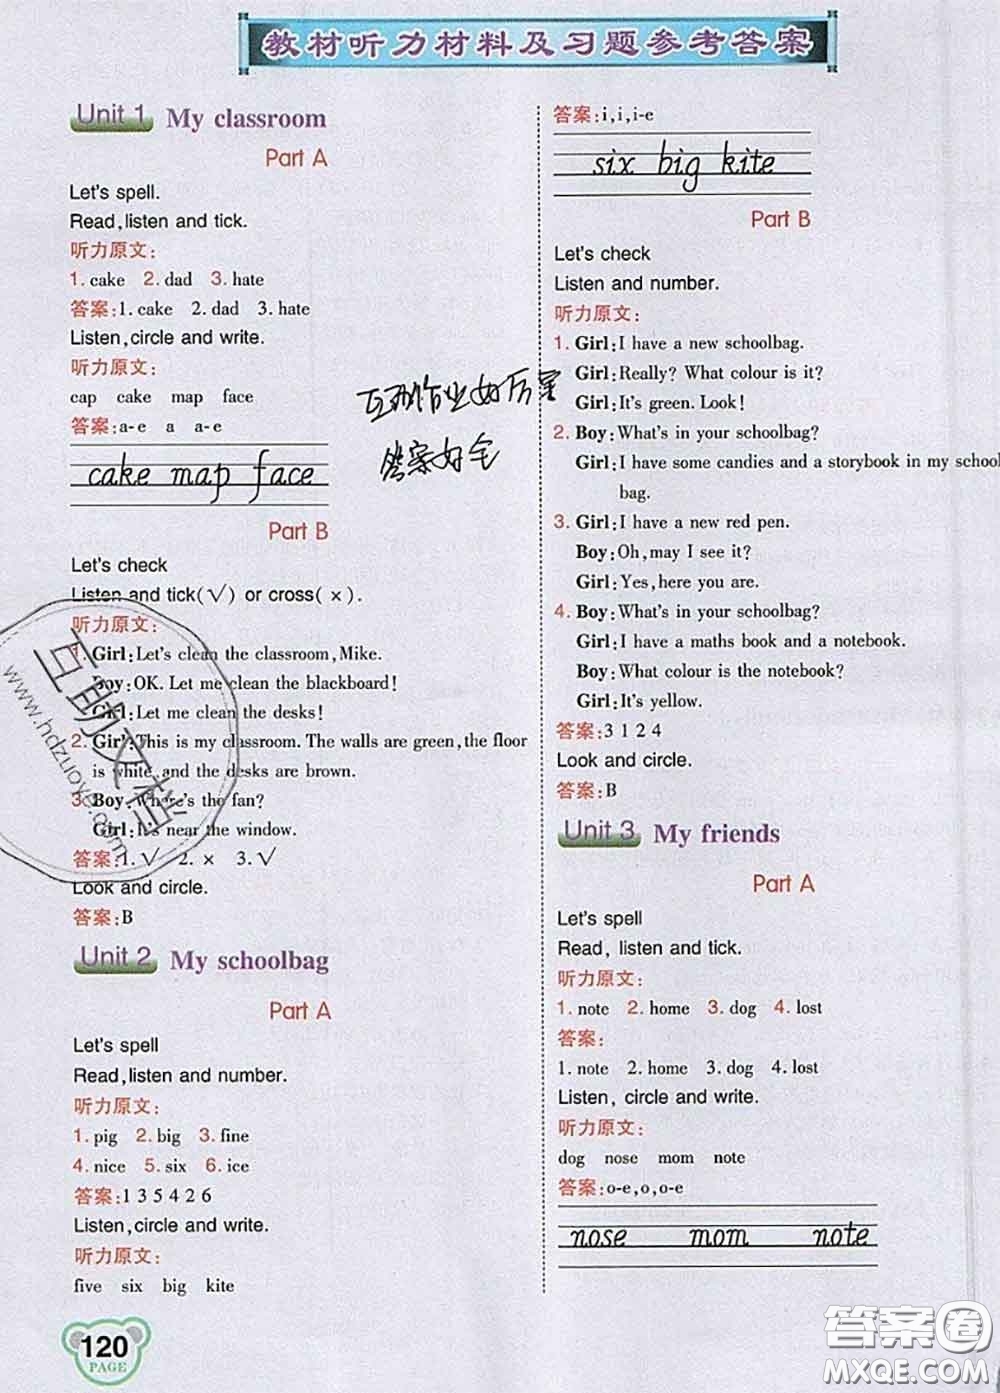 教材听力材料及习题参考答案
Unit 1 My classroom
Part A
Let's spell.
Read,listen and tick.
听力原文:
1. cake 2. dad 3. hate
答案:1. cake 2. dad 3. hate
Listen,circle and write.
听力原文:
cap cake map face
答案:a-e a a-e
cake map face
Part B
Let's check
Listen and tick(√) or cross(×).
听力原文:
1. Girl:Let's clean the classroom,Mike.
Boy:OK. Let me clean the blackboard!
Girl:Let me clean the desks!
2. Girl:This is my classroom. The walls are green,the floor
is white,and the desks are brown.
3. Boy:Where's the fan?
Girl:It's near the window.
答案:1.√ 2. × 3.√
Look and circle.
答案:B
Unit 2 My schoolbag
Part A
Let's spell
Read,listen and number.
听力原文:
1. pig 2. big 3. fine
4. nice 5. six 6. ice
答案:1 3 5 4 2 6
Listen,circle and write.
听力原文:
five six big kite
120
PAGE
答案:i,i,i-e
six big kite
Part B
Let's check
Listen and number.
听力原文:
1. Girl:I have a new schoolbag.
Girl:Really? What colour is it?
Girl:It's green. Look!
2. Boy:What's in your schoolbag?
Girl:I have some candies and a storybook in my school
bag.
3. Girl:I have a new red pen.
Boy:Oh,may I see it?
Girl:Yes,here you are.
4. Boy:What's in your schoolbag?
Girl:I have a maths book and a notebook.
Boy:What colour is the notebook?
Girl:It's yellow.
答案:3 1 2 4
Look and circle.
答案:B
Unit 3 My friends
Part A
Let's spell
Read, listen and tick.
听力原文:
1. note 2. home 3. dog 4. lost
答案:
1. note 2. home 3. dog 4. lost
Listen, circle and write.
听力原文:
dog nose mom note
答案:o-e,o,o-e
nose mom note
互助作业好厉害
答案好全
互助文档
www.hdzuoye.com
答案圈
MXQE.COM